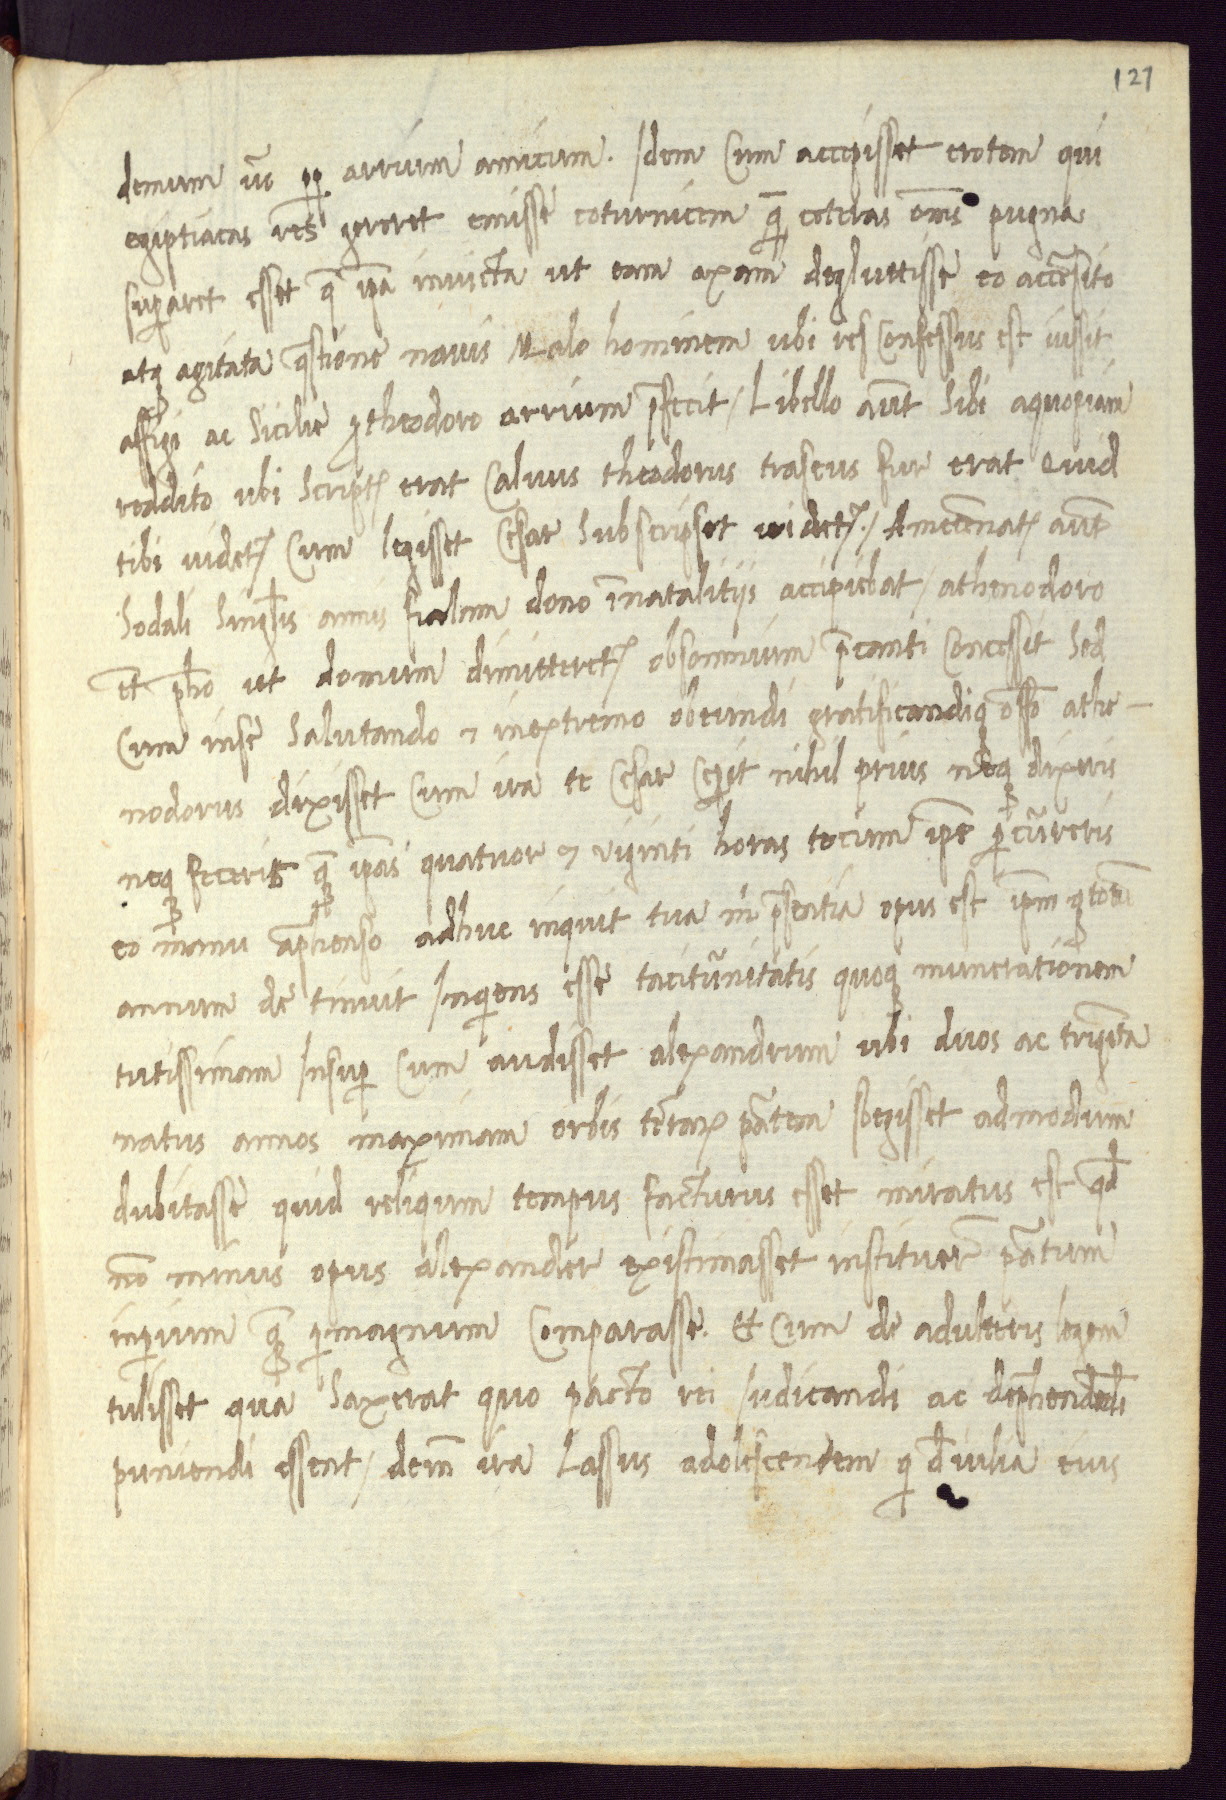 127
demum uo pp arrium amicum. Idem Cum accepisset erotem qui
egiptiacas res gereret emisse coturnicem q̄ ceteras oms pugna
superaret esset q̄ ipa inuicta ut eam axam degluttisse eo accersito
atq agitata q̄stione nauis Malo hominem ubi res Confessus est iussit
affigi ac Sicilie p theodoro arrium p̄fecit / Libello aut̄ Sibi aquopiam
reddito ubi Script erat Caluus theodorus traseus fur erat Quid
tibi uidet Cum legisset Cesar Subscripset uidet. / Amecenate aut̄
Sodali Singlis annis fialam dono ī natalitijs accipiebat / athenodoro
Et pho ut domum dimitteret obsonnium p̄canti Concessit Sed
Cum inse Salutando & inextremo obeundi gratificandiq offō athe-
nodorus dixisset Cum ira te Cesar Ceperit nihil prius neq dixeris
neq feceris q̄ ipas quatuor & viginti horas tecum ipe percūreris
eo manu ap̄henso adhuc inquit tua m̄ p̄sentia opus est ipm q totū
annum de tinuit Inqiens esse tacitūnitatis quoq munerationem
tutissimam Insup Cum audisset alexandrum ubi duos ac trigīta
natus annos maximam orbis terrar pātem sbegisset admodum
dubitasse quid reliqum tempus facturus esset miratus est qd
nō minus opus alexander existimasset instituer pātum
inperium q̄ permagnum Comparasse. Et Cum de adulteris legem
tulisset qua Saxerat quo pacto rei Iudicandi ac dep̄hendedi
puniendi essent / dem̄ ira Lassus adolescentem q d iulia eius